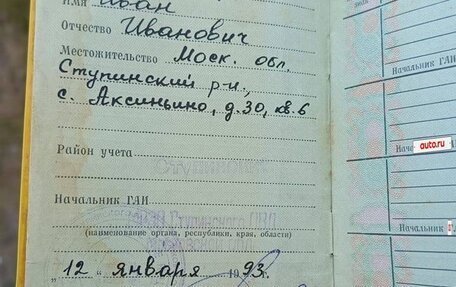 Имя Иван
Отчество Иванович
Местожительство Моск. обл.
Ступинский р-н,
с. Аксиньино, д. 30, кв. 6
Район учета
Начальник ГАИ
(наименование органа, республики, края, области)
"12" января 1993 г.
Начальник ГАИ
auto.ru
Начальник
Начальник